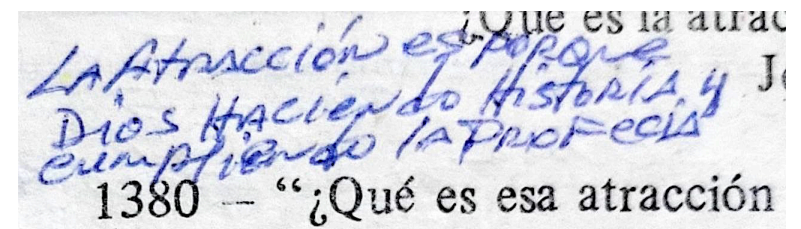 ¿Qué es la atrac
La Atracción es porque
Dios Haciendo Historia y
Je
cumpliendo la Profecía
1380 – “¿Qué es esa atracción